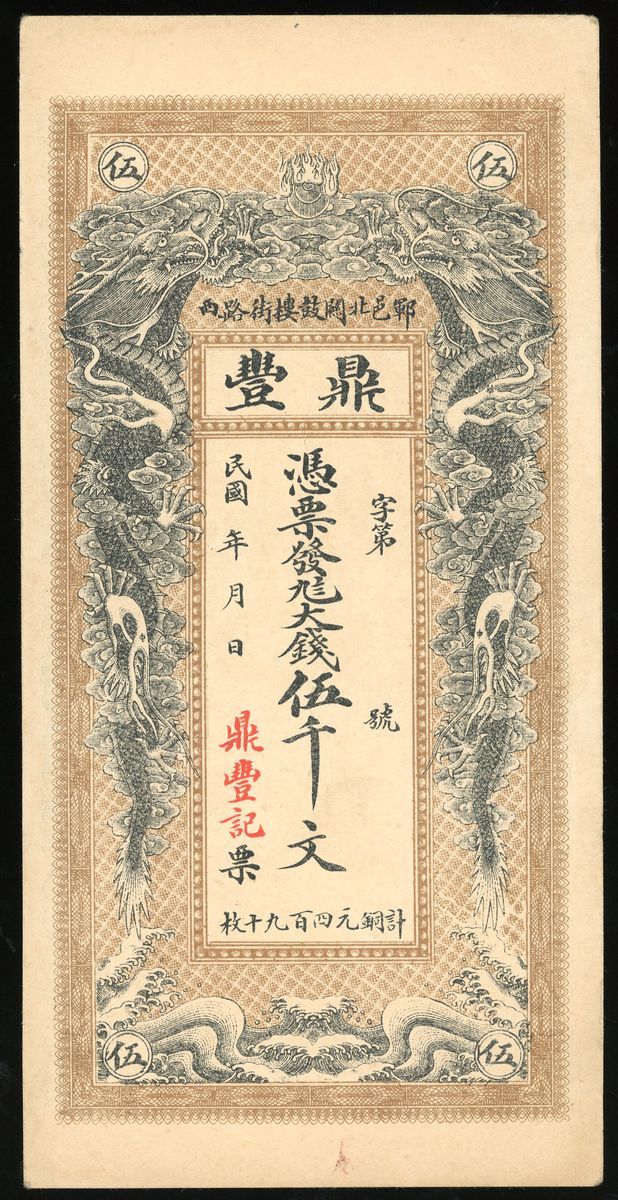 伍 伍
鄆邑北關鼓樓街路西
鼎豐
字第 號
憑票發大錢伍千文
民國 年 月 日
鼎豐記票
計銅元四百九十枚
伍 伍